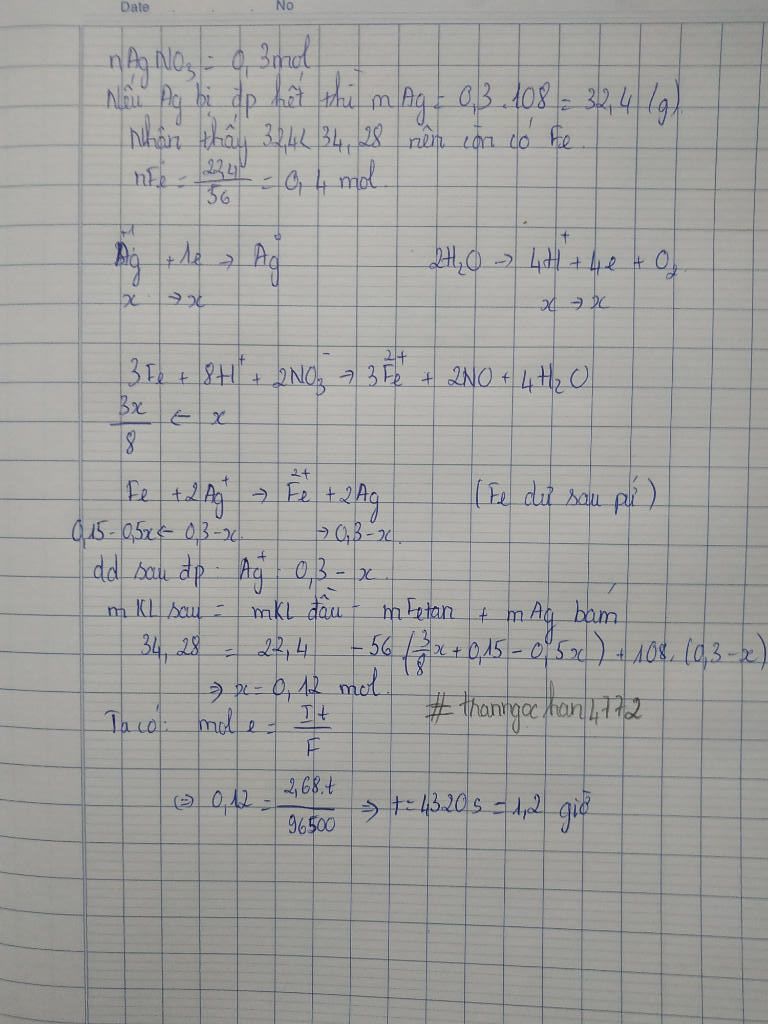 Date No
nAgNO₃ = 0,3mol
Nếu Ag bị đp hết thì mAg = 0,3.108 = 32,4 (g)
Nhận thấy 32,4< 34,28 nên còn có Fe.
nFe = 22,4/56 = 0,4 mol.
Ag⁺¹ + 1e → Ag⁰ 2H₂O → 4H⁺ + 4e + O₂
x → x x → x
3Fe + 8H⁺ + 2NO₃⁻ → 3Fe²⁺ + 2NO + 4H₂O
3x/8 ← x
Fe + 2Ag⁺ → Fe²⁺ + 2Ag (Fe dư sau pứ)
0,15-0,5x ← 0,3-x. → 0,3-x.
dd sau đp: Ag⁺: 0,3 - x.
mKL sau = mKL đầu - mFe tan + mAg bám
34,28 = 22,4 - 56 (3/8x + 0,15 - 0,5x) + 108. (0,3-x)
⇒ x = 0,12 mol.
Ta có: mol e = It/F
# thanngochan4772
⇔ 0,12 = 2,68.t/96500 ⇒ t = 4320s = 1,2 giờ